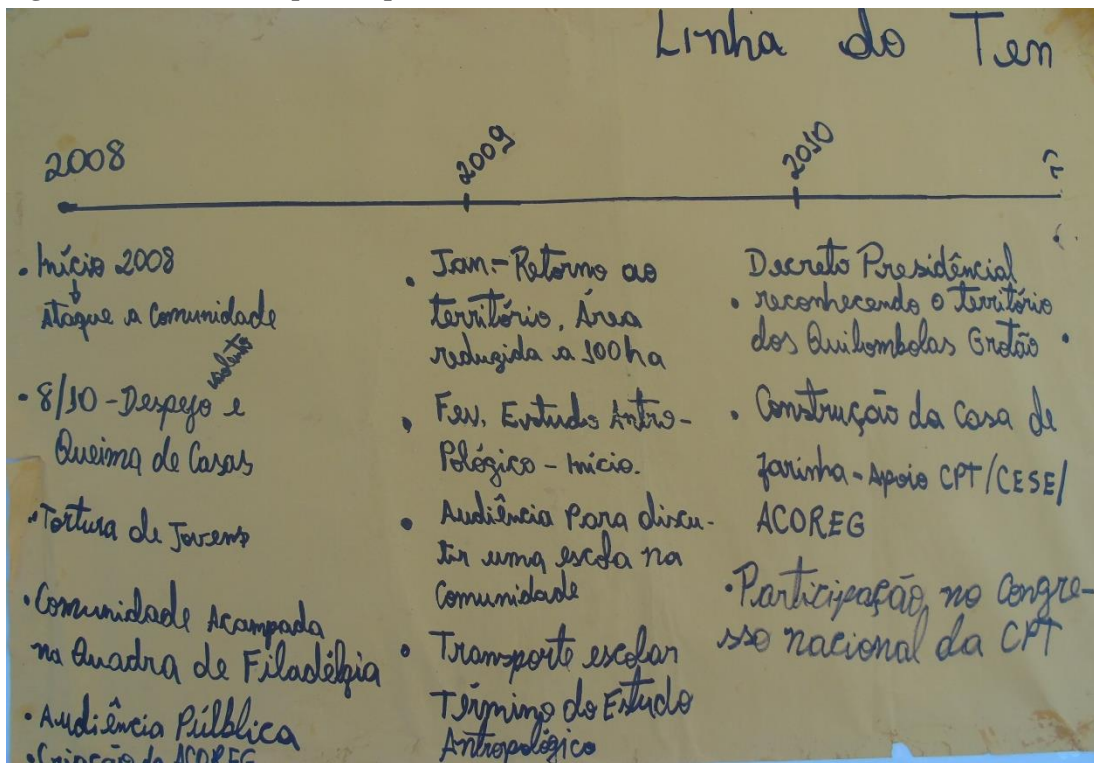 Linha do Tem
2008
2009
2010
• Início 2008
Ataque a Comunidade
violento
• 8/10 - Despejo e
Queima de Casas
• Tortura de Jovens
• Comunidade Acampada
na Quadra de Filadélfia
• Audiência Púlblica
• Criação da ACOREG
• Jan. - Retorno ao
território, Área
reduzida a 100 ha
• Fev. Estudo Antro-
Pológico - Início.
• Audiência Para discu-
tir uma escola na
Comunidade
• Transporte escolar
Término do Estudo
Antropológico
Decreto Presidêncial
• reconhecendo o território
dos Quilombolas Grotão
• Construção da Casa de
farinha - Apoio CPT/CESE/
ACOREG
• Participação no Congre-
sso nacional da CPT